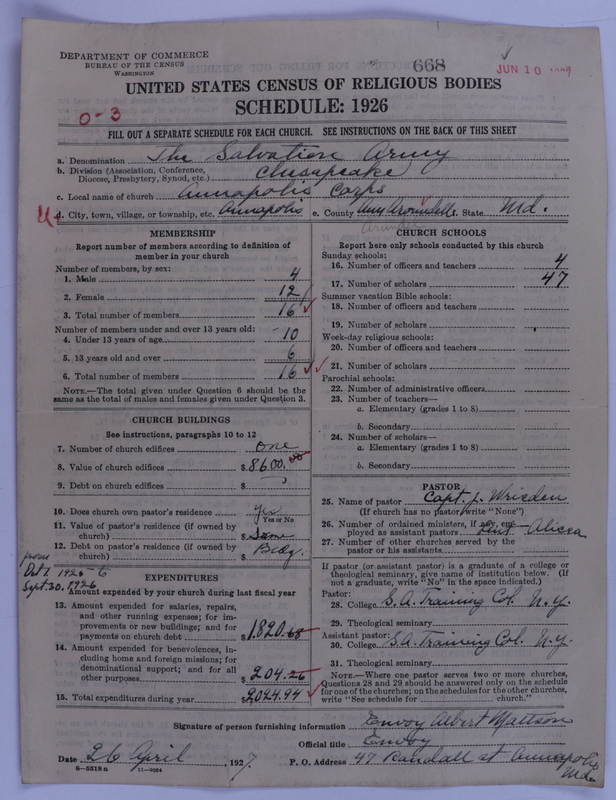 DEPARTMENT OF COMMERCE
BUREAU OF THE CENSUS
WASHINGTON
668
JUN 10
UNITED STATES CENSUS OF RELIGIOUS BODIES
SCHEDULE: 1926
0-3
FILL OUT A SEPARATE SCHEDULE FOR EACH CHURCH. SEE INSTRUCTIONS ON THE BACK OF THIS SHEET
a. Denomination The Salvation Army
b. Division (Association, Conference, Diocese, Presbytery, Synod, etc.) Chesapeake
c. Local name of church Annapolis Corps
d. City, town, village, or township, etc. Annapolis e. County Ann Arundell f. State Md.
Arundel
MEMBERSHIP
Report number of members according to definition of member in your church
Number of members, by sex:
1. Male 4
2. Female 12
3. Total number of members 16
Number of members under and over 13 years old:
4. Under 13 years of age 10
5. 13 years old and over 6
6. Total number of members 16
NOTE.—The total given under Question 6 should be the same as the total of males and females given under Question 3.
CHURCH BUILDINGS
See instructions, paragraphs 10 to 12
7. Number of church edifices one
8. Value of church edifices $8600.00
9. Debt on church edifices $
10. Does church own pastor's residence yes
Yes or No
11. Value of pastor's residence (if owned by church) $ Same
12. Debt on pastor's residence (if owned by church) $ Bldg.
from Oct 1 1925 to Sept. 30. 1926
EXPENDITURES
Amount expended by your church during last fiscal year
13. Amount expended for salaries, repairs, and other running expenses; for improvements or new buildings; and for payments on church debt $1,820.68
14. Amount expended for benevolences, including home and foreign missions; for denominational support; and for all other purposes $204.26
15. Total expenditures during year $2024.94
CHURCH SCHOOLS
Report here only schools conducted by this church
Sunday schools:
16. Number of officers and teachers 4
17. Number of scholars 47
Summer vacation Bible schools:
18. Number of officers and teachers
19. Number of scholars
Week-day religious schools:
20. Number of officers and teachers
21. Number of scholars
Parochial schools:
22. Number of administrative officers
23. Number of teachers—
a. Elementary (grades 1 to 8)
b. Secondary
24. Number of scholars—
a. Elementary (grades 1 to 8)
b. Secondary
PASTOR
25. Name of pastor Capt. J. Wrisden
(If church has no pastor write "None")
26. Number of ordained ministers, if any, employed as assistant pastors
27. Number of other churches served by the pastor or his assistants
If pastor (or assistant pastor) is a graduate of a college or theological seminary, give name of institution below. (If not a graduate, write "No" in the space indicated.)
Pastor:
28. College S.A. Training Col. N.Y.
29. Theological seminary
Assistant pastor:
30. College S.A. Training Col. N.Y.
31. Theological seminary
NOTE.—Where one pastor serves two or more churches, Questions 28 and 29 should be answered only on the schedule for one of the churches; on the schedules for the other churches, write "See schedule for church."
Signature of person furnishing information Envoy Albert Mattson
Official title Envoy
Date 26 April, 1927 P. O. Address 47 Randall st Annapolis Md.
8—5518 a 11—9024